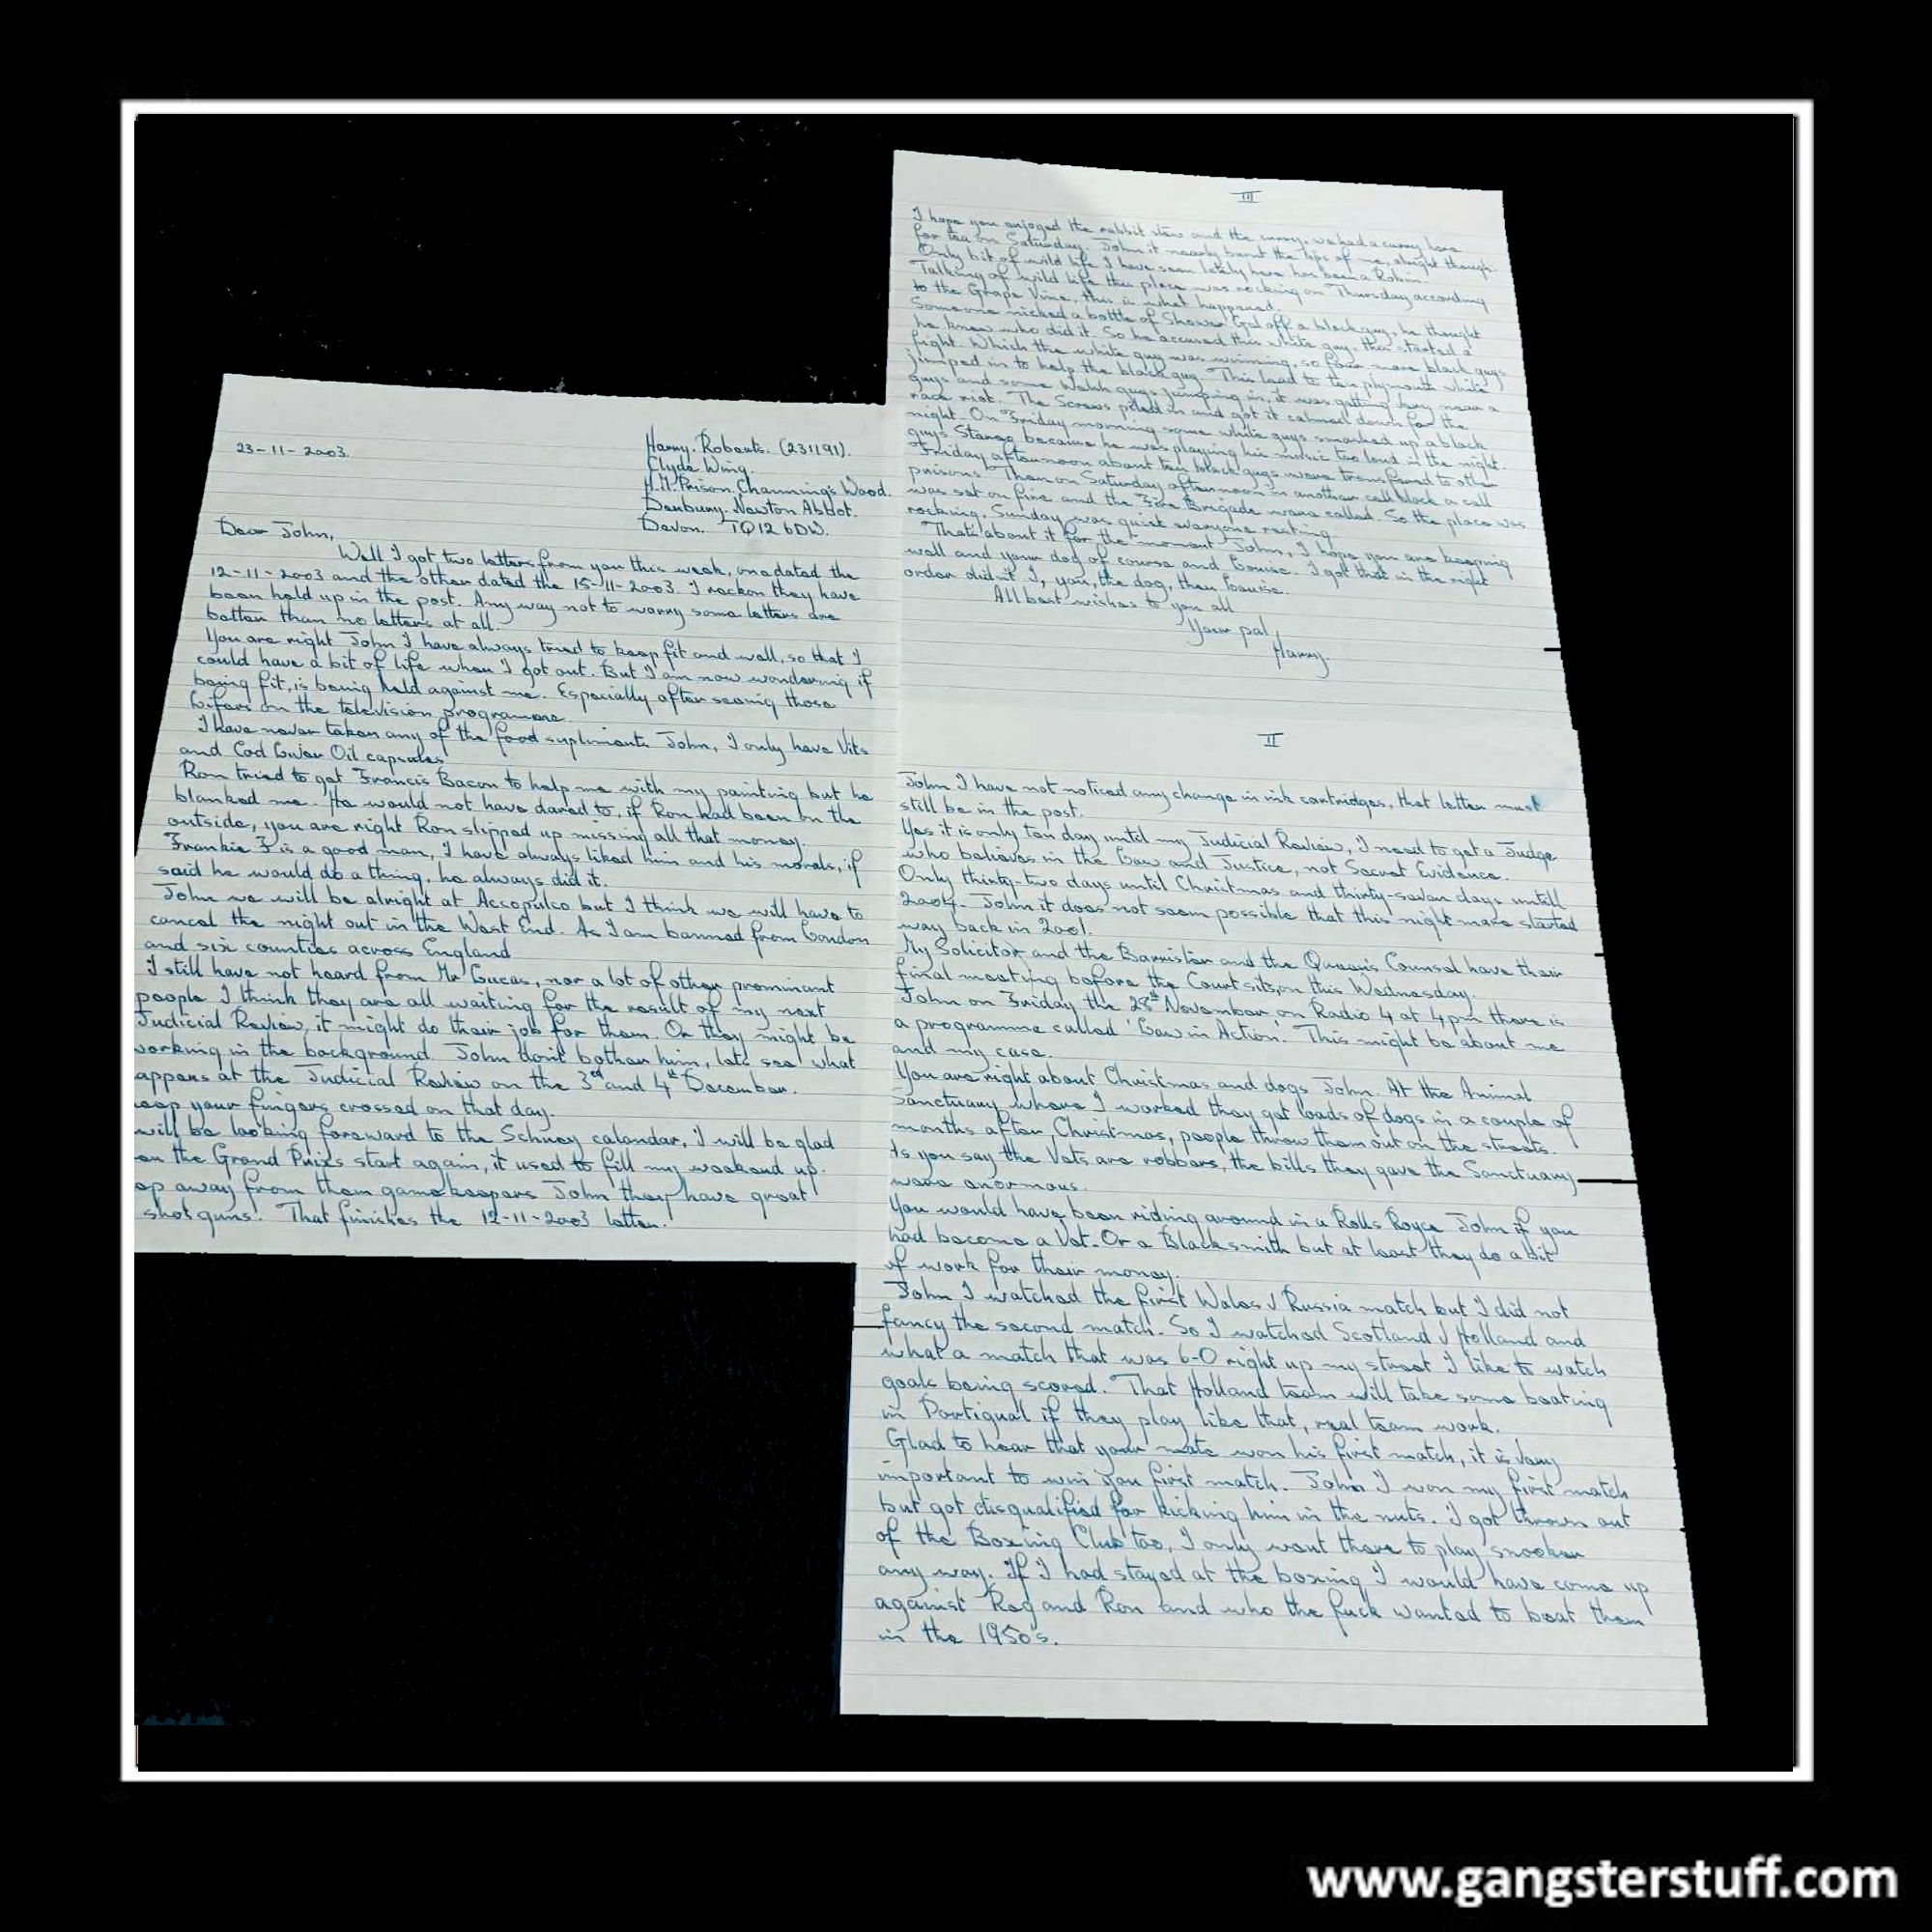 23-11-2003.
Harry. Roberts. (231191).
Clyde Wing.
H.M. Prison, Channing's Wood.
Denbury. Newton Abbot.
Devon. TQ12 6DW.
Dear John,
Well I got two letters from you this week, one dated the
12-11-2003 and the other dated the 15-11-2003. I reckon they have
been held up in the post. Any way not to worry some letters are
better than no letters at all.
You are right John I have always tried to keep fit and well, so that I
could have a bit of life when I got out. But I am now wondering if
being fit, is being held against me. Especially after seeing those
Lifers on the television programme.
I have never taken any of the food supliments John, I only have Vits
and Cod Liver Oil capsules
Ron tried to get Francis Bacon to help me with my painting but he
blanked me. He would not have dared to, if Ron had been on the
outside, you are right Ron slipped up missing all that money.
Frankie F is a good man, I have always liked him and his morals, if
said he would do a thing, he always did it.
John we will be alright at Accopulco but I think we will have to
cancel the night out in the West End. As I am banned from London
and six counties across England
I still have not heard from Mr Lucas, nor a lot of other prominant
people I think they are all waiting for the result of my next
Judicial Review, it might do their job for them. Or they might be
working in the background. John don't bother him, lets see what
appens at the Judicial Review on the 3rd and 4th December.
eep your fingers crossed on that day.
will be looking foreward to the Schuey calandar, I will be glad
en the Grand Prixs start again, it used to fill my weekend up.
ep away from them gamekeepers John they have great
shot guns. That finishes the 12-11-2003 letter.
II
John I have not noticed any change in ink cartridges, that letter must
still be in the post.
Yes it is only ten day until my Judicial Review, I need to get a Judge
who believes in the Law and Justice, not Secret Evidence.
Only thirty-two days until Christmas and thirty-seven days untill
2004. John it does not seem possible that this night mare started
way back in 2001.
My Solicitor and the Barrister and the Queen's Counsel have their
final meeting before the Court sits, on this Wednesday.
John on Friday the 28th November on Radio 4 at 4pm there is
a programme called 'Law in Action'. This might be about me
and my case.
You are right about Christmas and dogs John. At the Animal
Sanctuary where I worked they got loads of dogs in a couple of
months after Christmas, people throw them out on the streets.
As you say the Vets are robbers, the bills they gave the Sanctuary
were enormous.
You would have been riding around in a Rolls Royce John if you
had become a Vet. Or a Blacksmith but at least they do a bit
of work for their money.
John I watched the first Wales / Russia match but I did not
fancy the second match. So I watched Scotland / Holland and
what a match that was 6-0 right up my street I like to watch
goals being scored. That Holland team will take some beating
in Portigual if they play like that, real team work.
Glad to hear that your mate won his first match, it is very
important to win you first match. John I won my first match
but got disqualified for kicking him in the nuts. I got thrown out
of the Boxing Club too, I only went there to play snooker
any way. If I had stayed at the boxing I would have come up
against Reg and Ron and who the fuck wanted to beat them
in the 1950's.
III
I hope you enjoyed the rabbit stew and the curry, we had a curry here
for tea on Saturday. John it nearly burnt the lips of me, alright though.
Only bit of wild life I have seen lately here has been a Robin.
Talking of wild life this place was rocking on Thursday according
to the Grape Vine, this is what happened.
Someone nicked a bottle of Shower Gel off a black guy, he thought
he knew who did it. So he accused this white guy, this started a
fight. Which the white guy was winning, so four more black guys
jumped in to help the black guy. This lead to ten plymouth white
guys and some Welsh guys jumping in, it was getting very near a
race riot. The Screws piled in and got it calmed down for the
night. On Friday morning some white guys smashed up a black
guys Stereo because he was playing his music too loud in the night.
Friday afternoon about ten black guys were transfered to other
prisons. Then on Saturday afternoon in another cell block a cell
was set on fire and the Fire Brigade were called. So the place was
rocking, Sunday was quiet everyone resting.
That's about it for the moment John, I hope you are keeping
well and your dog of course and Louise. I got that in the right
order didn't I, you, the dog, then Louise.
All best wishes to you all
Your pal,
Harry.
www.gangsterstuff.com